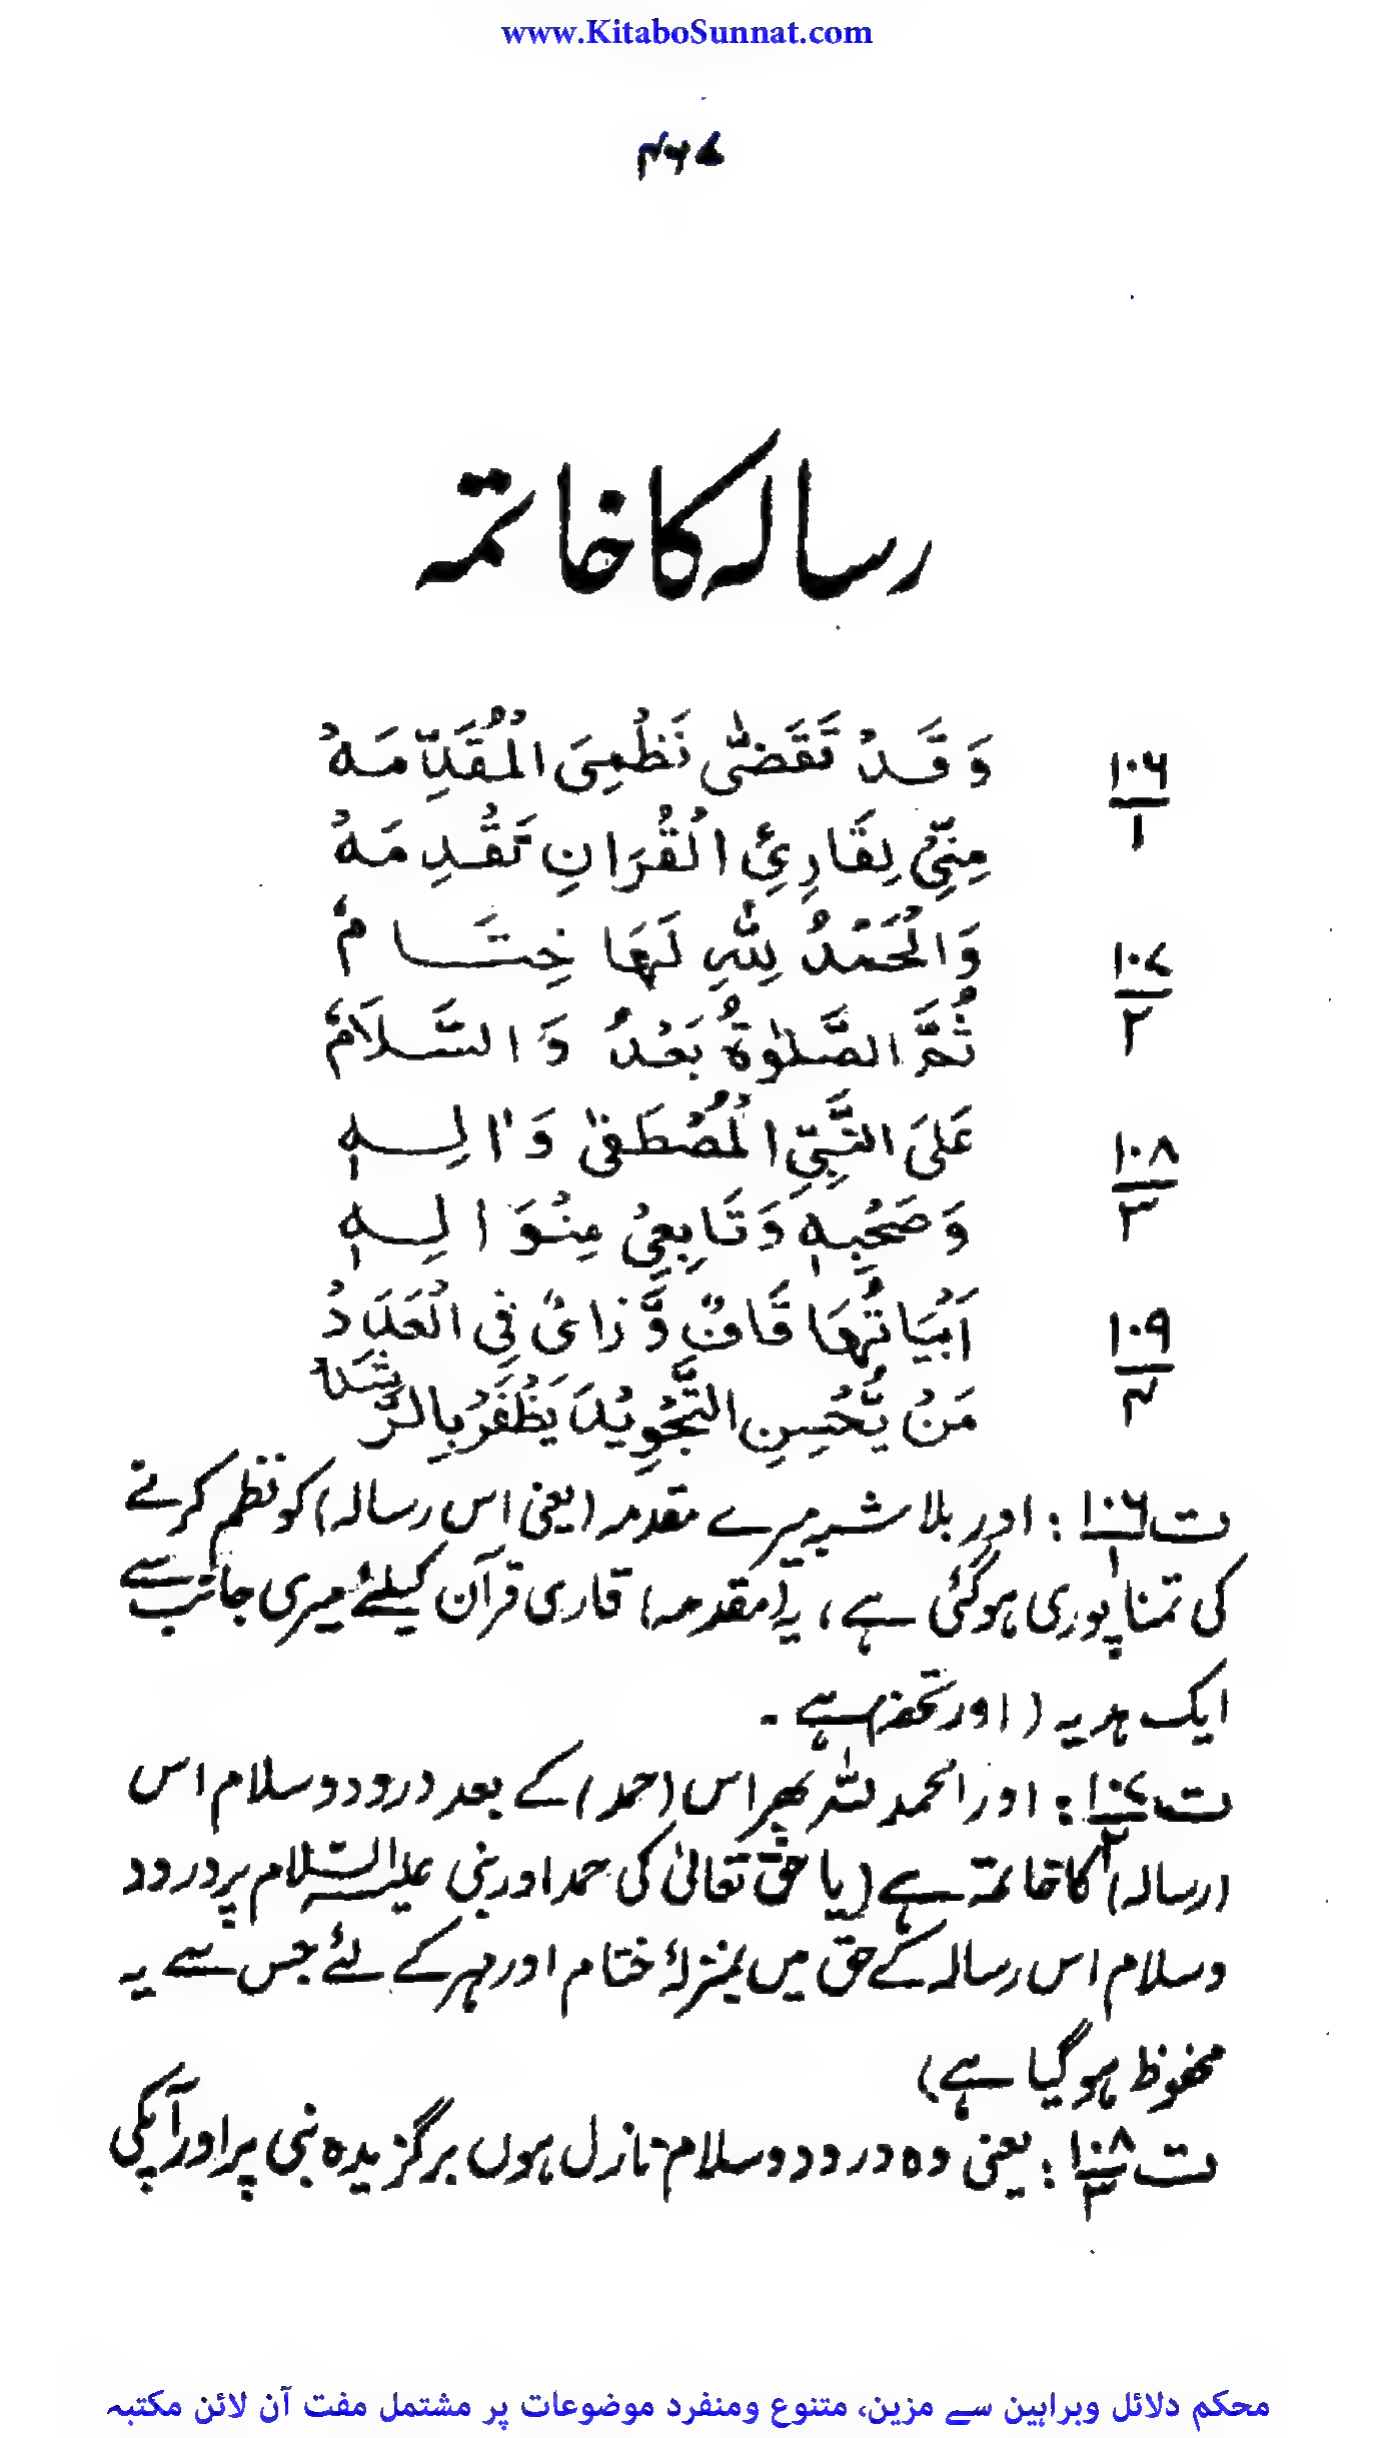 www.KitaboSunnat.com
۴۶۷
رسالہ کا خاتمہ
۱۰۶/۱ وَقَدْ تَقَضّٰى نَظْمِىَ الْمُقَدِّمَهْ
مِنِّىْ لِقَارِئِ الْقُرَانِ تَقْدِمَهْ
۱۰۷/۲ وَالْحَمْدُ لِلّٰهِ لَهَا خِتَامُ
ثُمَّ الصَّلٰوةُ بَعْدُ وَالسَّلَامُ
۱۰۸/۳ عَلَى النَّبِىِّ الْمُصْطَفٰى وَاٰلِهٖ
وَصَحْبِهٖ وَتَابِعِىْ مِنْوَالِهٖ
۱۰۹/۴ اَبْيَاتُهَا قَافٌ وَّزَاىٌ فِى الْعَدَدْ
مَنْ يُّحْسِنِ التَّجْوِيْدَ يَظْفَرْ بِالرَّشَدْ
ت ۱۰۶/۱ : اور بلا شبہ میرے مقدمہ (یعنی اس رسالہ) کو نظم کرنے
کی تمنا پوری ہوگئی ہے، یہ (مقدمہ) قاری قرآن کیلئے میری جانب سے
ایک ہدیہ (اور تحفہ) ہے ۔
ت ۱۰۷/۲ : اور الحمد للّٰہ پھر اس (حمد) کے بعد درود وسلام اس
(رسالہ) کا خاتمہ ہے (یا حق تعالیٰ کی حمد اور نبی علیہ السّلام پر درود
وسلام اس رسالہ کے حق میں بمنزلۂ ختام اور مہر کے لئے جس سے یہ
محفوظ ہو گیا ہے)
ت ۱۰۸/۳ : یعنی وہ درود وسلام نازل ہوں برگزیدہ نبی پر اور آپکی
محکم دلائل وبراہین سے مزین، متنوع ومنفرد موضوعات پر مشتمل مفت آن لائن مکتبہ